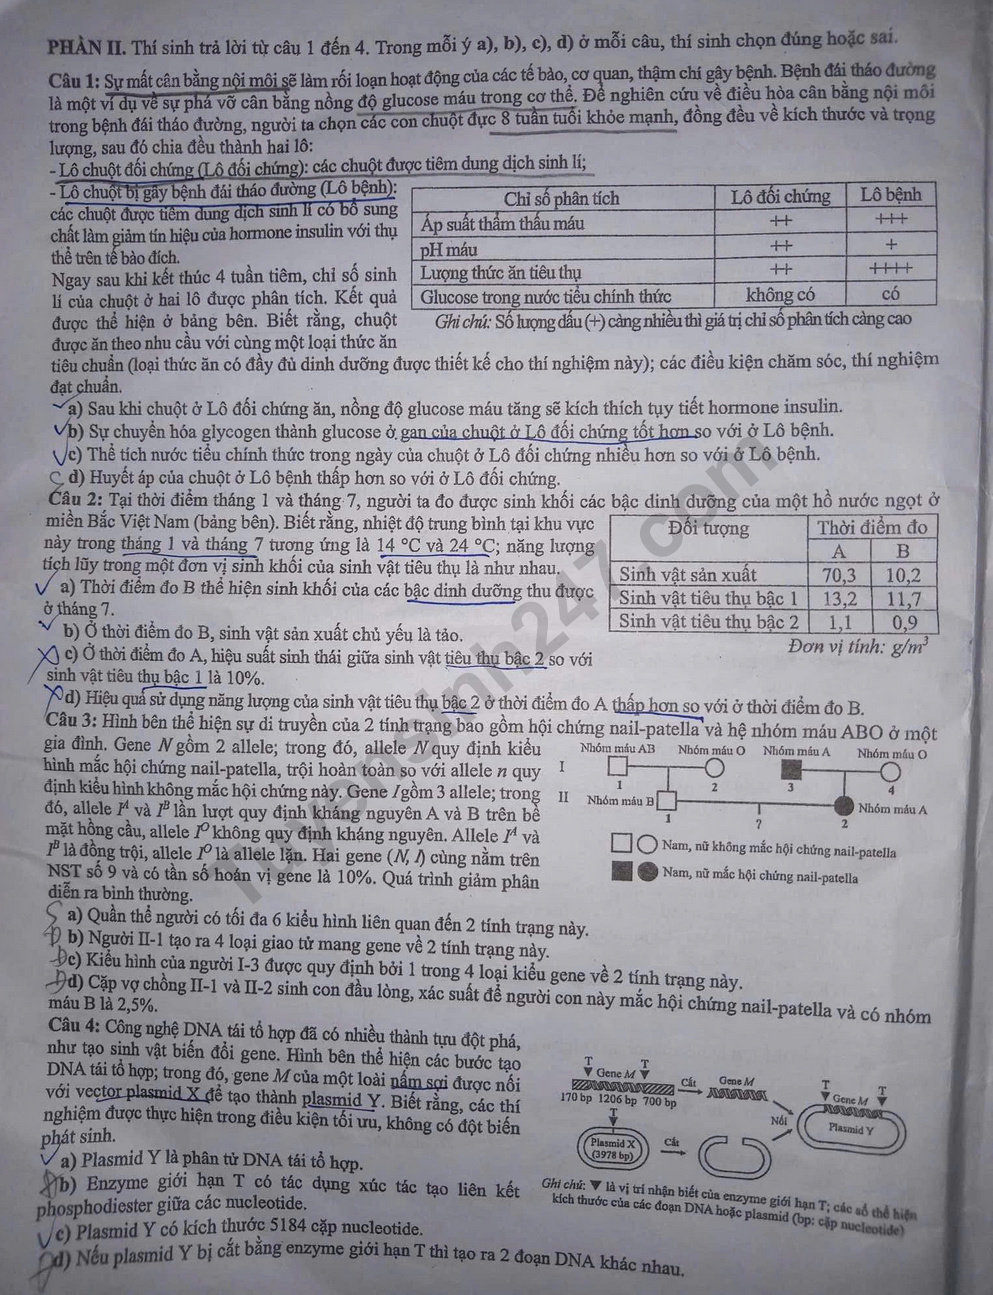 PHẦN II. Thí sinh trả lời từ câu 1 đến 4. Trong mỗi ý a), b), c), d) ở mỗi câu, thí sinh chọn đúng hoặc sai.
Câu 1: Sự mất cân bằng nội môi sẽ làm rối loạn hoạt động của các tế bào, cơ quan, thậm chí gây bệnh. Bệnh đái tháo đường
là một ví dụ về sự phá vỡ cân bằng nồng độ glucose máu trong cơ thể. Để nghiên cứu về điều hòa cân bằng nội môi
trong bệnh đái tháo đường, người ta chọn các con chuột đực 8 tuần tuổi khỏe mạnh, đồng đều về kích thước và trọng
lượng, sau đó chia đều thành hai lô:
- Lô chuột đối chứng (Lô đối chứng): các chuột được tiêm dung dịch sinh lí;
- Lô chuột bị gây bệnh đái tháo đường (Lô bệnh):
các chuột được tiêm dung dịch sinh lí có bổ sung
chất làm giảm tín hiệu của hormone insulin với thụ
thể trên tế bào đích.
Ngay sau khi kết thúc 4 tuần tiêm, chỉ số sinh
lí của chuột ở hai lô được phân tích. Kết quả
được thể hiện ở bảng bên. Biết rằng, chuột
được ăn theo nhu cầu với cùng một loại thức ăn
Chỉ số phân tích Lô đối chứng Lô bệnh
Áp suất thẩm thấu máu ++ +++
pH máu ++ +
Lượng thức ăn tiêu thụ ++ ++++
Glucose trong nước tiểu chính thức không có có
Ghi chú: Số lượng dấu (+) càng nhiều thì giá trị chỉ số phân tích càng cao
tiêu chuẩn (loại thức ăn có đầy đủ dinh dưỡng được thiết kế cho thí nghiệm này); các điều kiện chăm sóc, thí nghiệm
đạt chuẩn.
a) Sau khi chuột ở Lô đối chứng ăn, nồng độ glucose máu tăng sẽ kích thích tụy tiết hormone insulin.
b) Sự chuyển hóa glycogen thành glucose ở gan của chuột ở Lô đối chứng tốt hơn so với ở Lô bệnh.
c) Thể tích nước tiểu chính thức trong ngày của chuột ở Lô đối chứng nhiều hơn so với ở Lô bệnh.
d) Huyết áp của chuột ở Lô bệnh thấp hơn so với ở Lô đối chứng.
Câu 2: Tại thời điểm tháng 1 và tháng 7, người ta đo được sinh khối các bậc dinh dưỡng của một hồ nước ngọt ở
miền Bắc Việt Nam (bảng bên). Biết rằng, nhiệt độ trung bình tại khu vực
này trong tháng 1 và tháng 7 tương ứng là 14 °C và 24 °C; năng lượng
tích lũy trong một đơn vị sinh khối của sinh vật tiêu thụ là như nhau.
a) Thời điểm đo B thể hiện sinh khối của các bậc dinh dưỡng thu được
ở tháng 7.
b) Ở thời điểm đo B, sinh vật sản xuất chủ yếu là tảo.
c) Ở thời điểm đo A, hiệu suất sinh thái giữa sinh vật tiêu thụ bậc 2 so với
sinh vật tiêu thụ bậc 1 là 10%.
Đối tượng Thời điểm đo
A B
Sinh vật sản xuất 70,3 10,2
Sinh vật tiêu thụ bậc 1 13,2 11,7
Sinh vật tiêu thụ bậc 2 1,1 0,9
Đơn vị tính: g/m³
d) Hiệu quả sử dụng năng lượng của sinh vật tiêu thụ bậc 2 ở thời điểm đo A thấp hơn so với ở thời điểm đo B.
Câu 3: Hình bên thể hiện sự di truyền của 2 tính trạng bao gồm hội chứng nail-patella và hệ nhóm máu ABO ở một
gia đình. Gene N gồm 2 allele; trong đó, allele N quy định kiểu
hình mắc hội chứng nail-patella, trội hoàn toàn so với allele n quy
định kiểu hình không mắc hội chứng này. Gene I gồm 3 allele; trong
đó, allele Iᴬ và Iᴮ lần lượt quy định kháng nguyên A và B trên bề
mặt hồng cầu, allele Iᴼ không quy định kháng nguyên. Allele Iᴬ và
Iᴮ là đồng trội, allele Iᴼ là allele lặn. Hai gene (N, I) cùng nằm trên
NST số 9 và có tần số hoán vị gene là 10%. Quá trình giảm phân
diễn ra bình thường.
Nhóm máu AB Nhóm máu O Nhóm máu A Nhóm máu O
I
1 2 3 4
II Nhóm máu B Nhóm máu A
1 ? 2
Nam, nữ không mắc hội chứng nail-patella
Nam, nữ mắc hội chứng nail-patella
a) Quần thể người có tối đa 6 kiểu hình liên quan đến 2 tính trạng này.
b) Người II-1 tạo ra 4 loại giao tử mang gene về 2 tính trạng này.
c) Kiểu hình của người I-3 được quy định bởi 1 trong 4 loại kiểu gene về 2 tính trạng này.
d) Cặp vợ chồng II-1 và II-2 sinh con đầu lòng, xác suất để người con này mắc hội chứng nail-patella và có nhóm
máu B là 2,5%.
Câu 4: Công nghệ DNA tái tổ hợp đã có nhiều thành tựu đột phá,
như tạo sinh vật biến đổi gene. Hình bên thể hiện các bước tạo
DNA tái tổ hợp; trong đó, gene M của một loài nấm sợi được nối
với vector plasmid X để tạo thành plasmid Y. Biết rằng, các thí
nghiệm được thực hiện trong điều kiện tối ưu, không có đột biến
phát sinh.
T T
Gene M
Cắt
Gene M
170 bp 1206 bp 700 bp
T
Plasmid X
(3978 bp)
Cắt
Nối
T T
Gene M
Plasmid Y
Ghi chú: ▼ là vị trí nhận biết của enzyme giới hạn T; các số thể hiện
kích thước của các đoạn DNA hoặc plasmid (bp: cặp nucleotide)
a) Plasmid Y là phân tử DNA tái tổ hợp.
b) Enzyme giới hạn T có tác dụng xúc tác tạo liên kết
phosphodiester giữa các nucleotide.
c) Plasmid Y có kích thước 5184 cặp nucleotide.
d) Nếu plasmid Y bị cắt bằng enzyme giới hạn T thì tạo ra 2 đoạn DNA khác nhau.
Tuyensinh247.com